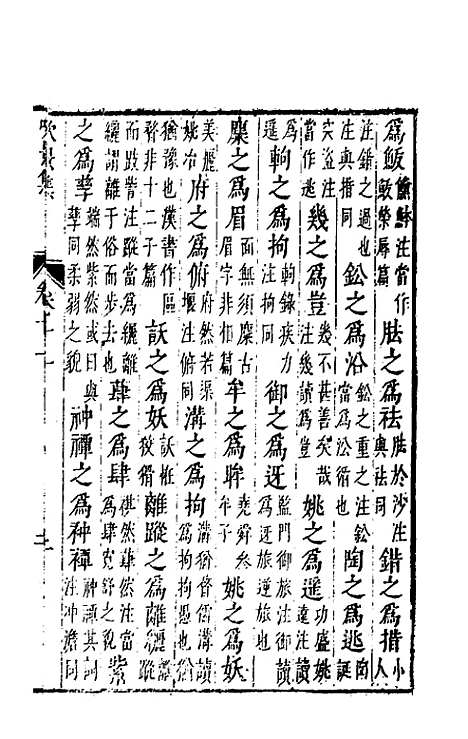 爲鮁儵䱁注當作鮁榮辱篇胠之爲袪胠於沙注與袪同錯之爲措小人
注錯之過也注與措同鈆之爲沿鈆之重之注鈆當爲沿循也陶之爲逃陶誕
突盜注當作逃幾之爲豈幾不甚善矣哉注幾讀爲豈姚之爲遥功盛姚遠注讀
爲遥軥之爲拘軥錄疾力注同拘御之爲迓監門御旅注御讀爲迓逆旅也
麋之爲眉面無須麋古眉字非相篇牟之爲眸堯舜參牟子姚之爲妖
美麗姚冶府之爲俯府然若渠堰注俯同溝之爲拘溝猶瞀儒溝讀爲拘拘愁也
猶豫也漢書作區瞀非十二子篇訞之爲妖訞怪狡猾離蹤之爲離纚離蹤
而跂訾注蹤當爲纚離纚謂離于俗而步去也之爲肆祺然然注當爲肆寛舒之貌紫
之爲孳端然紫然或曰與孳同柔弱之貌神禫之爲神禫神禫其詞注沖澹同
吹景集 卷十一